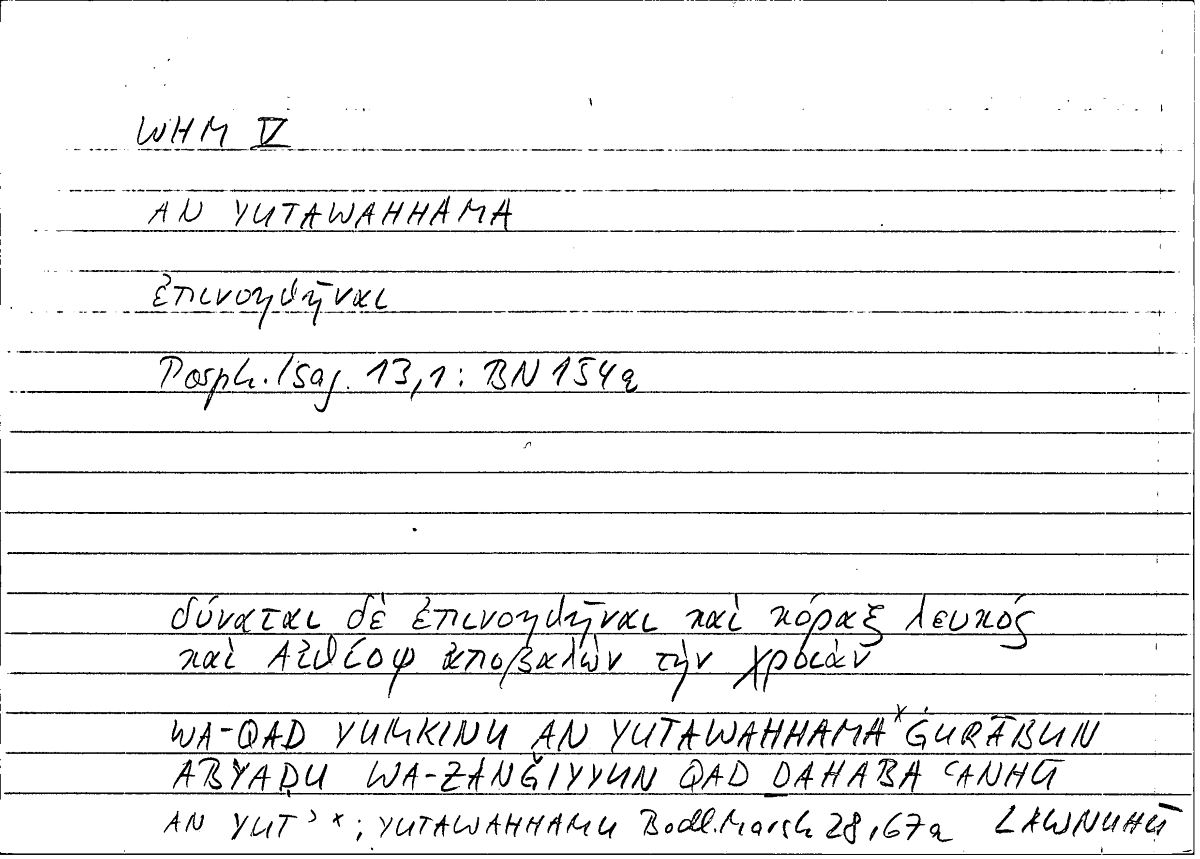 WHM V
AN YUTAWAHHAMA
ἐπινοηθῆναι
Porph. Isag. 13,1: BN 154a
δύναται δὲ ἐπινοηθῆναι καὶ κόραξ λευκός
καὶ Αἰθίοψ ἀποβαλὼν τὴν χροιὰν
WA-QAD YUMKINU AN YUTAWAHHAMA× ĠURĀBUN
ABYAḌU WA-ZANǦIYYUN QAD ḎAHABA ʿANHŪ
AN YUTʾ ×; YUTAWAHHAMU Bodl. Marsh 28, 67a LAWNUHŪ